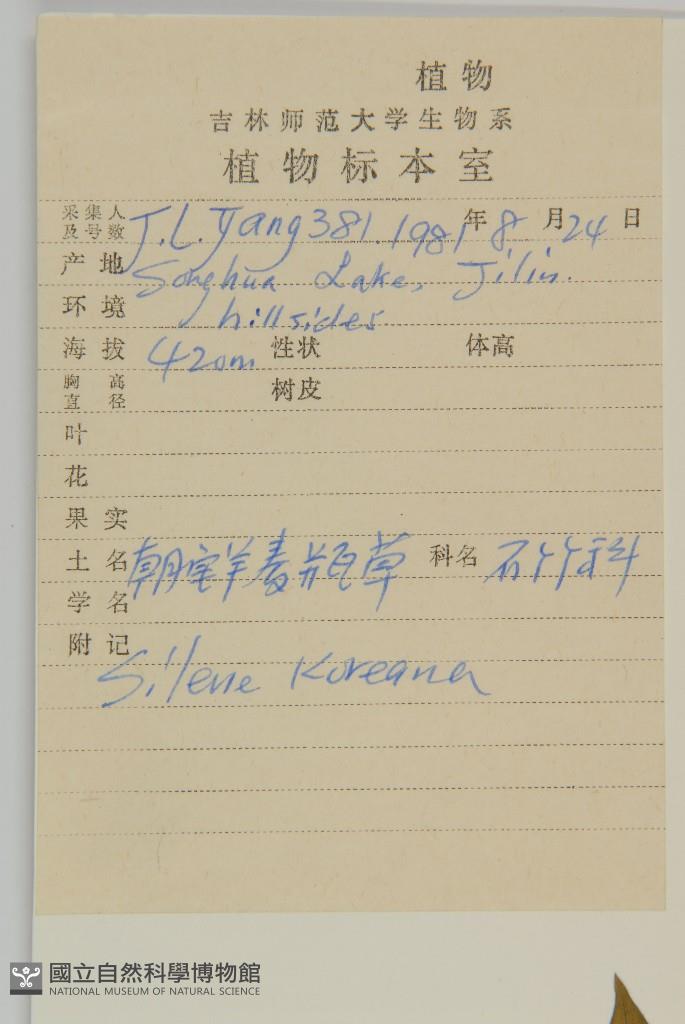 植物
吉林师范大学生物系
植物标本室
采集人及号数 J.L. Yang 381. 1981年8月24日
产地 Songhua Lake, Jilin.
环境 hillsides
海拔 420m 性状 体高
胸高直径 树皮
叶
花
果实
土名 朝鲜麦瓶草 科名 石竹科
学名
附记 Silene Koreana
國立自然科學博物館
NATIONAL MUSEUM OF NATURAL SCIENCE